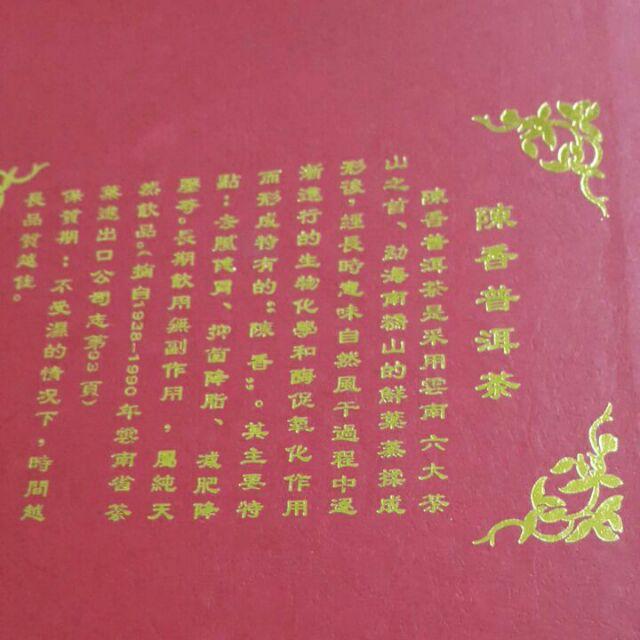 陳香普洱茶
陳香普洱茶是采用雲南六大茶
山之首、勐海南糯山的鮮葉蒸揉成
形後，經長時味自然風干過程中逐
漸進行的生物化學和酶促氧化作用
而形成特有的“陳香”。其主要特
點：去膩胃、抑菌降脂、減肥降
壓奇。長期飲用無副作用，屬純天
然飲品。(摘自1938-1990年雲南省茶
葉進出口公司志第93頁)
保質期：不受濕的情況下，時間越
長品質越佳。